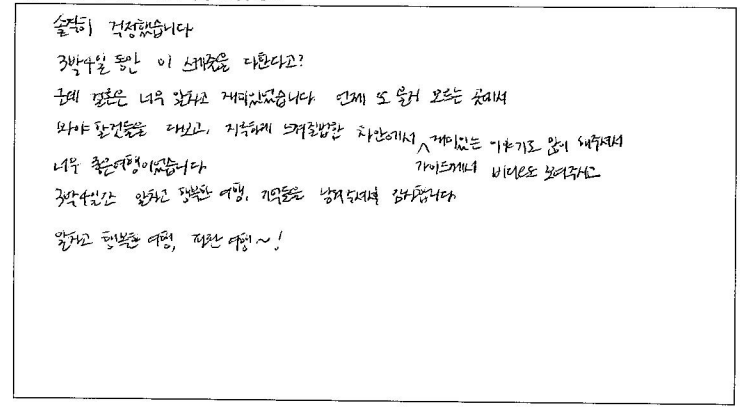 솔직히 걱정했습니다
3박4일 동안 이 스케쥴을 다한다고?
근데 결론은 너무 알차고 재미있었습니다. 언제 또 올지 모르는 곳에서
봐야 할것들을 다보고, 지루하게 느껴질법한 차안에서 ∨ 재미있는 이야기도 많이 해주셔서
가이드께서 비디오도 보여주시고
너무 좋은여행이었습니다
3박4일간 알차고 행복한 여행, 기억들을 남겨주셔서 감사합니다.
알차고 행복한 여행, 편한 여행~!